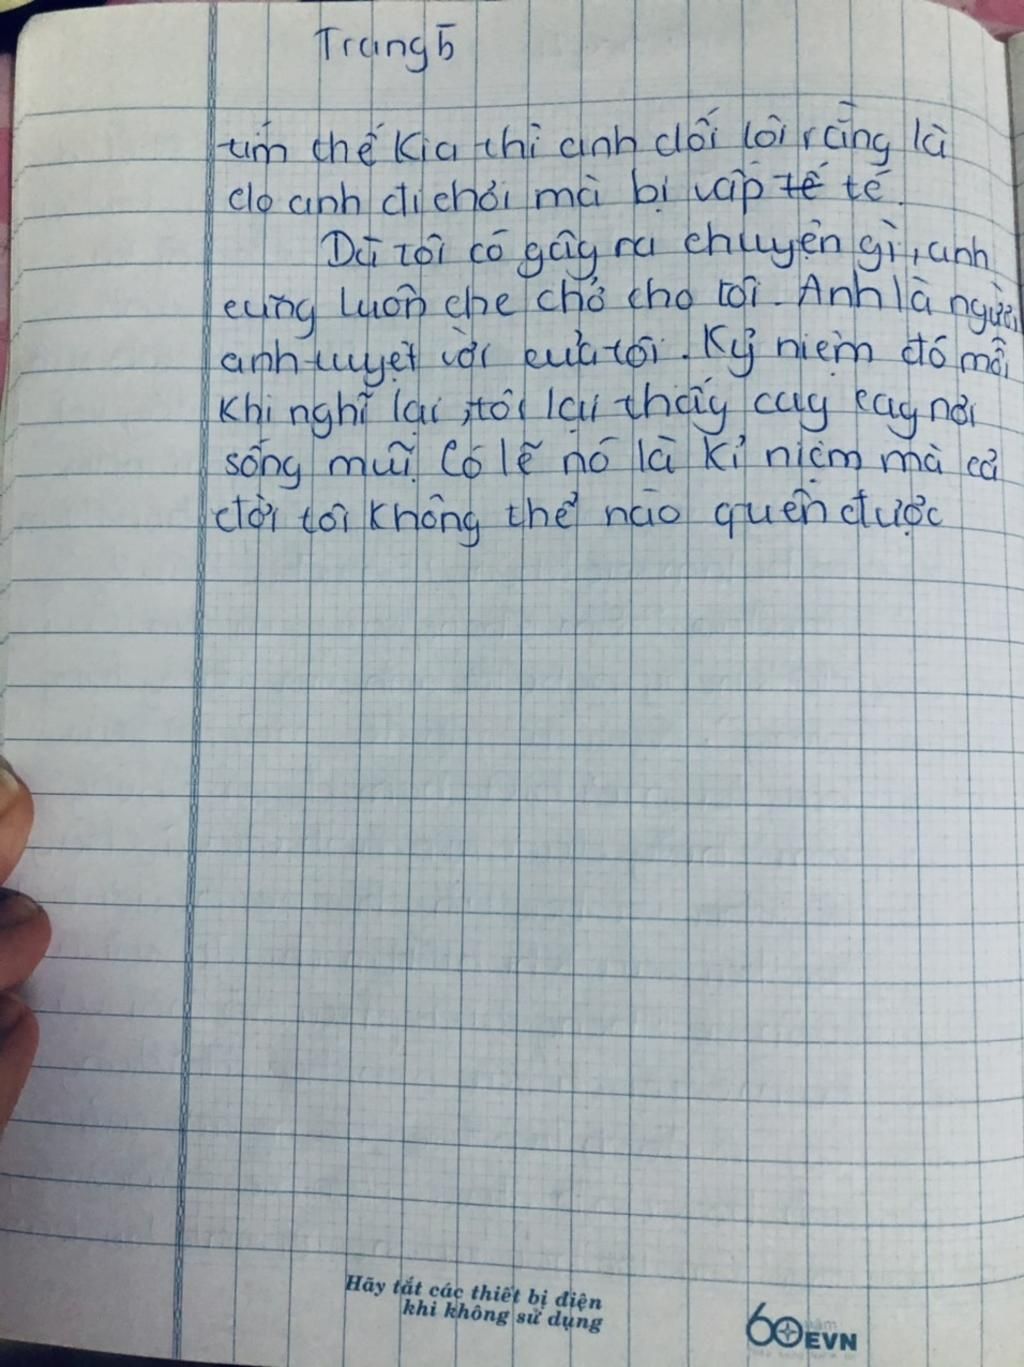 Trang 5
tím thế kia thì anh dối lời rằng là
do anh đi chơi mà bị vấp tế té.
Dù tôi có gây ra chuyện gì, anh
cũng luôn che chở cho tôi. Anh là người
anh tuyệt vời của tôi. Kỷ niệm đó mỗi
khi nghĩ lại, tôi lại thấy cay cay nơi
sống mũi. Có lẽ nó là kỉ niệm mà cả
đời tôi không thể nào quên được
Hãy tắt các thiết bị điện
khi không sử dụng
60 năm
EVN